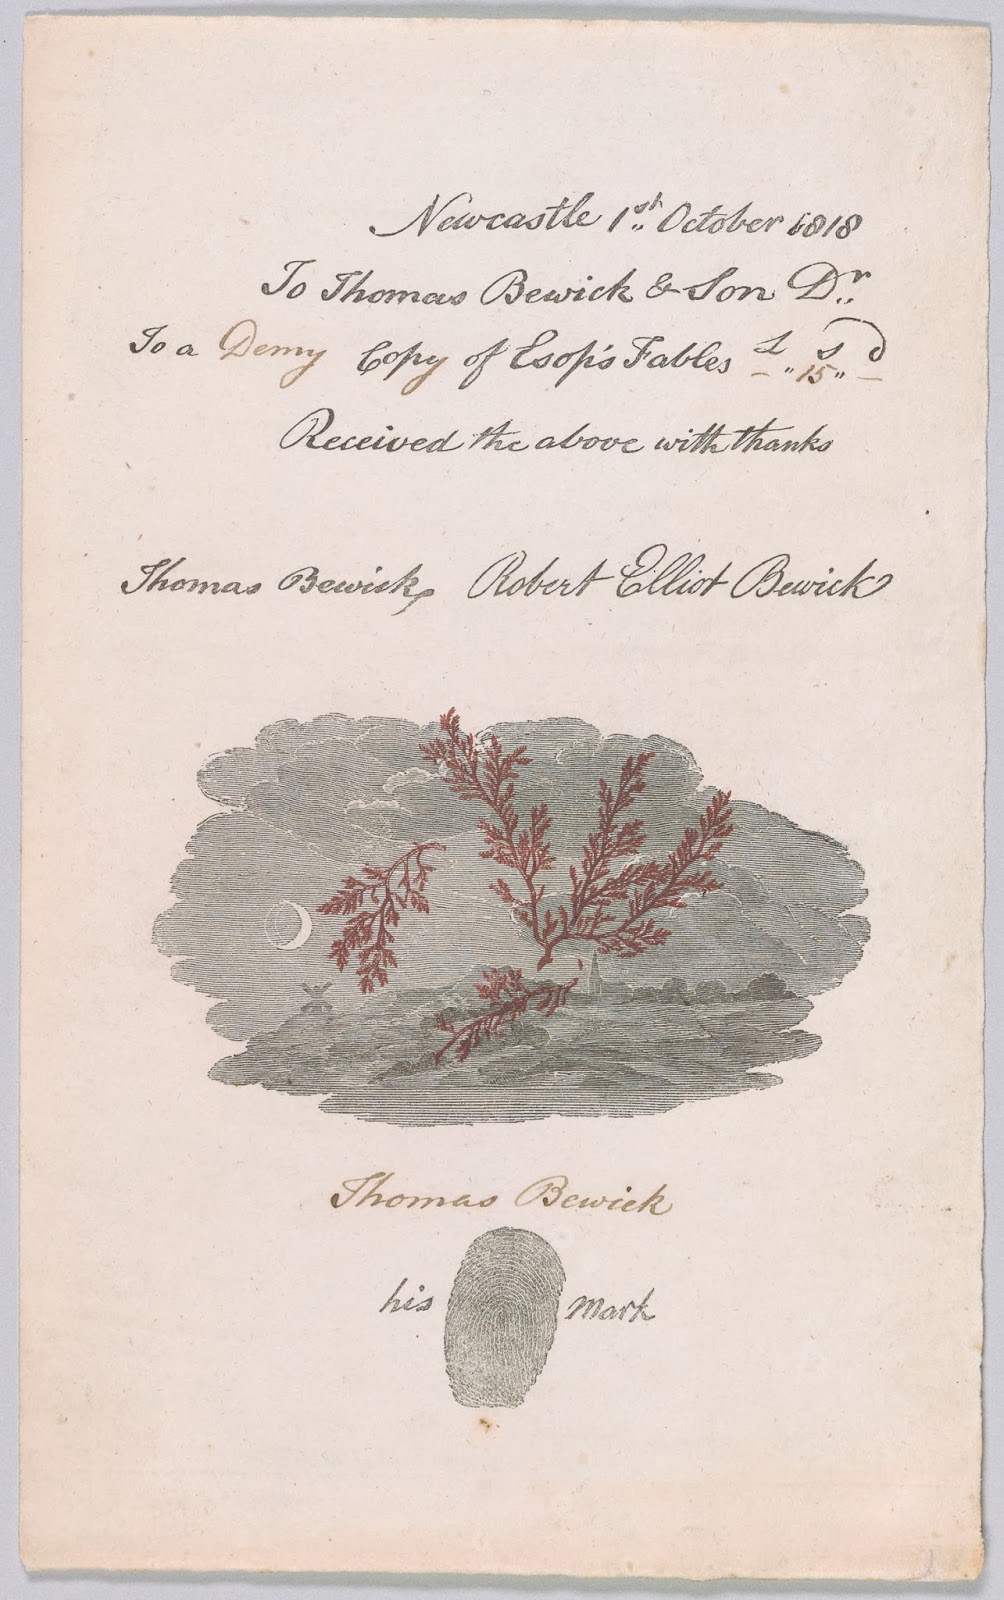 Newcastle 1st October 1818
To Thomas Bewick & Son Dr
To a Demy Copy of Esop's Fables £ „ s „ d
– „ 15 „ –
Received the above with thanks
Thomas Bewick Robert Elliot Bewick
Thomas Bewick
his mark